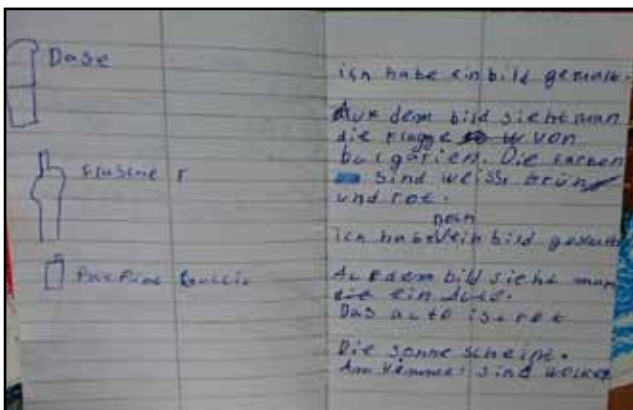 Dose
Flasche F
ich habe ein bild gemalt.
Auf dem bild sieht man
die Flagge von
bulgarien. Die Farben
sind weiss Grün
und rot.
noch
ich habe ein bild gemalt
Auf dem bild sieht man
die ein Auto.
Das auto ist rot
Die sonne scheint.
Am Himmel sind wolken